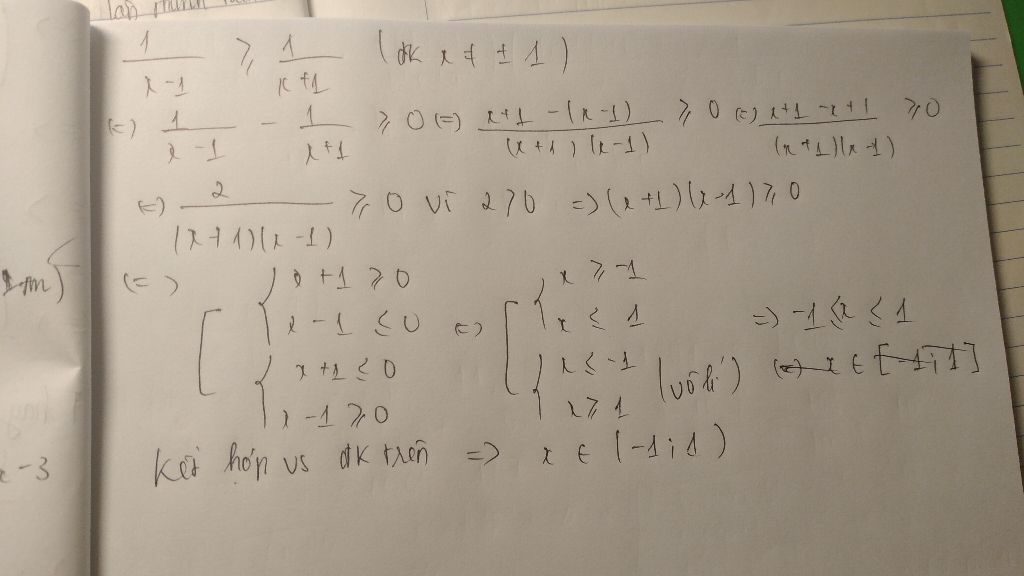 1/(x-1) ⩾ 1/(x+1) (đk x ≠ ± 1)
(=) 1/(x-1) - 1/(x+1) ⩾ 0 (=) (x+1 -(x-1))/((x+1)(x-1)) ⩾ 0 (=) (x+1 -x+1)/((x+1)(x-1)) ⩾ 0
(=) 2/((x+1)(x-1)) ⩾ 0 vì 2 > 0 => (x+1)(x-1) ⩾ 0
(=) [ { x+1 ⩾ 0 (=) [ { x ⩾ -1
x-1 ⩽ 0 x ⩽ 1 => -1 ⩽ x ⩽ 1
{ x+1 ⩽ 0 { x ⩽ -1 (vô lí) (=) x ∈ [-1;1]
x-1 ⩾ 0 x ⩾ 1
Kết hợp vs đk trên => x ∈ (-1;1)
-m)
-3